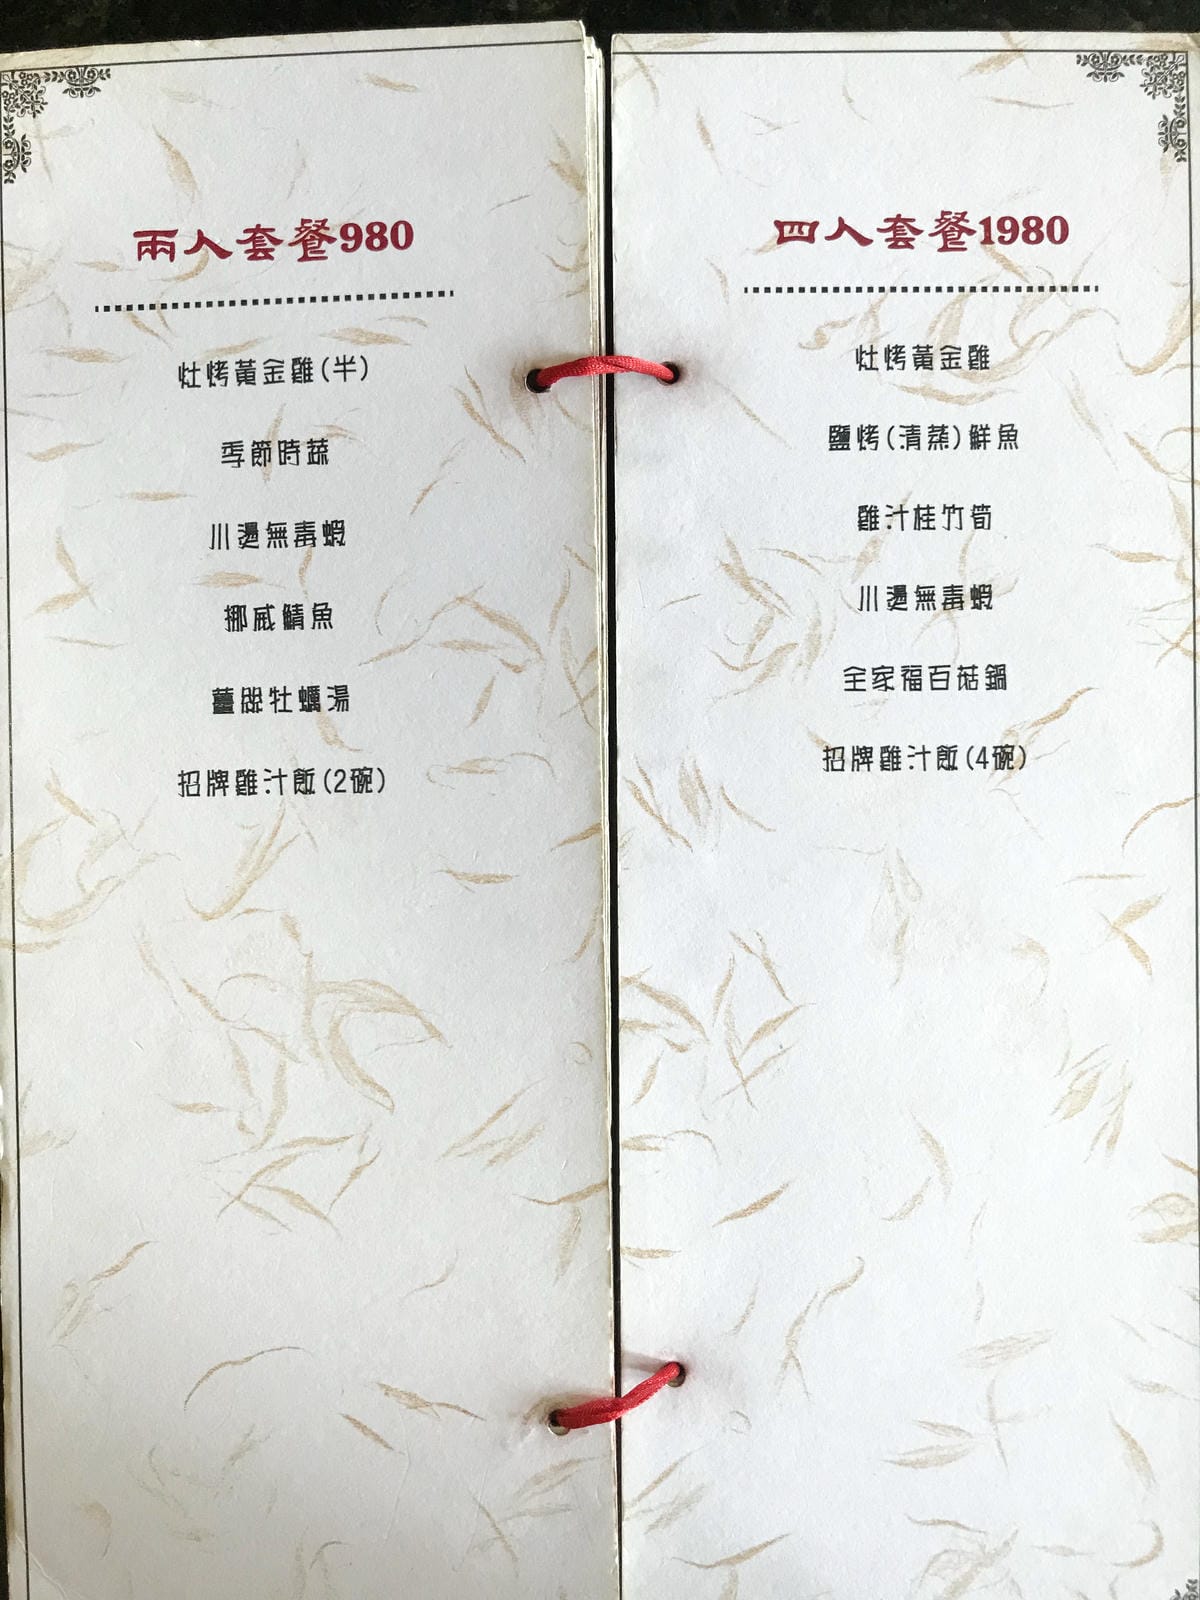 兩人套餐980
灶烤黃金雞(半)
季節時蔬
川燙無毒蝦
挪威鯖魚
薑絲牡蠣湯
招牌雞汁飯(2碗)
四人套餐1980
灶烤黃金雞
鹽烤(清蒸)鮮魚
雞汁桂竹筍
川燙無毒蝦
全家福百菇鍋
招牌雞汁飯(4碗)